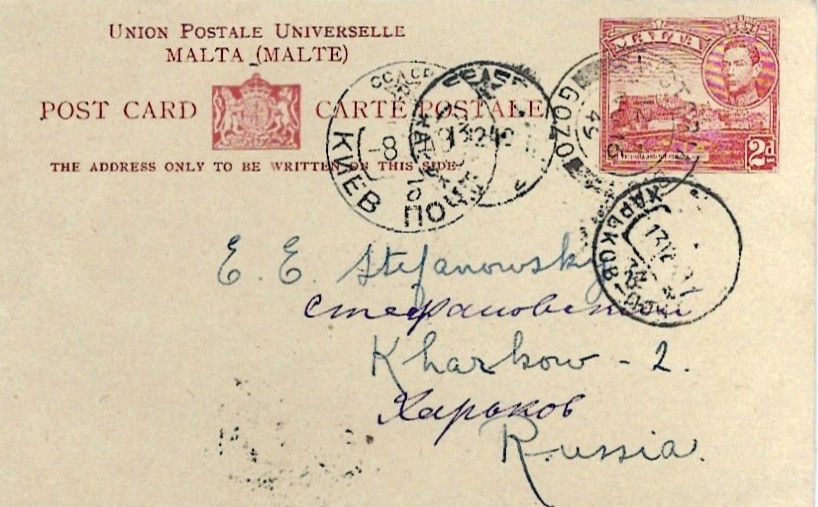 UNION POSTALE UNIVERSELLE
MALTA (MALTE)
POST CARD CARTE POSTALE
THE ADDRESS ONLY TO BE WRITTEN ON THIS SIDE
MALTA
2d
GOZO
49
КИЕВ
-8
ПОЧТ
ХАРЬКОВ
E. E. Stefanowsky
Стефановский
Kharkow - 2.
Харьков
Russia.